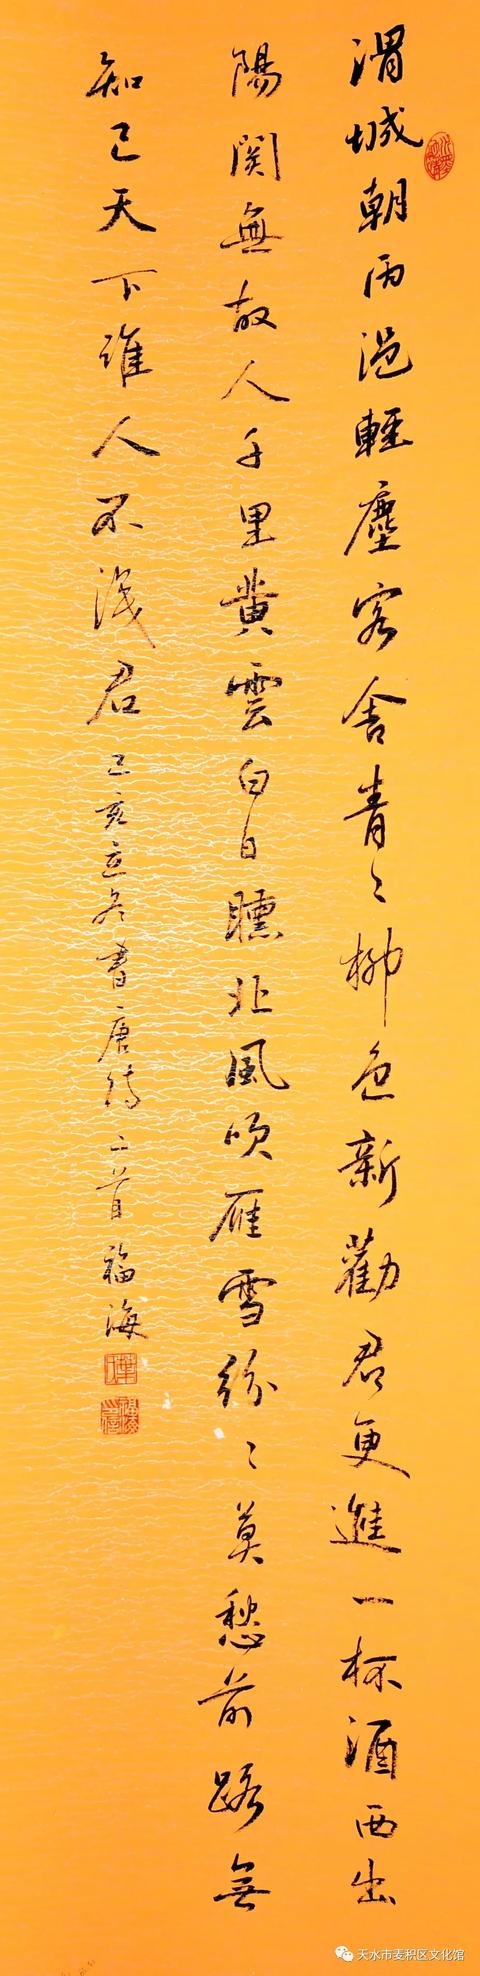 渭城朝雨浥輕塵客舍青々柳色新勸君更進一杯酒西出
陽関無故人千里黄雲白日曛北風吹雁雪紛々莫愁前路無
知己天下誰人不識君己亥立冬書唐詩二首福海
天水市麦积区文化馆